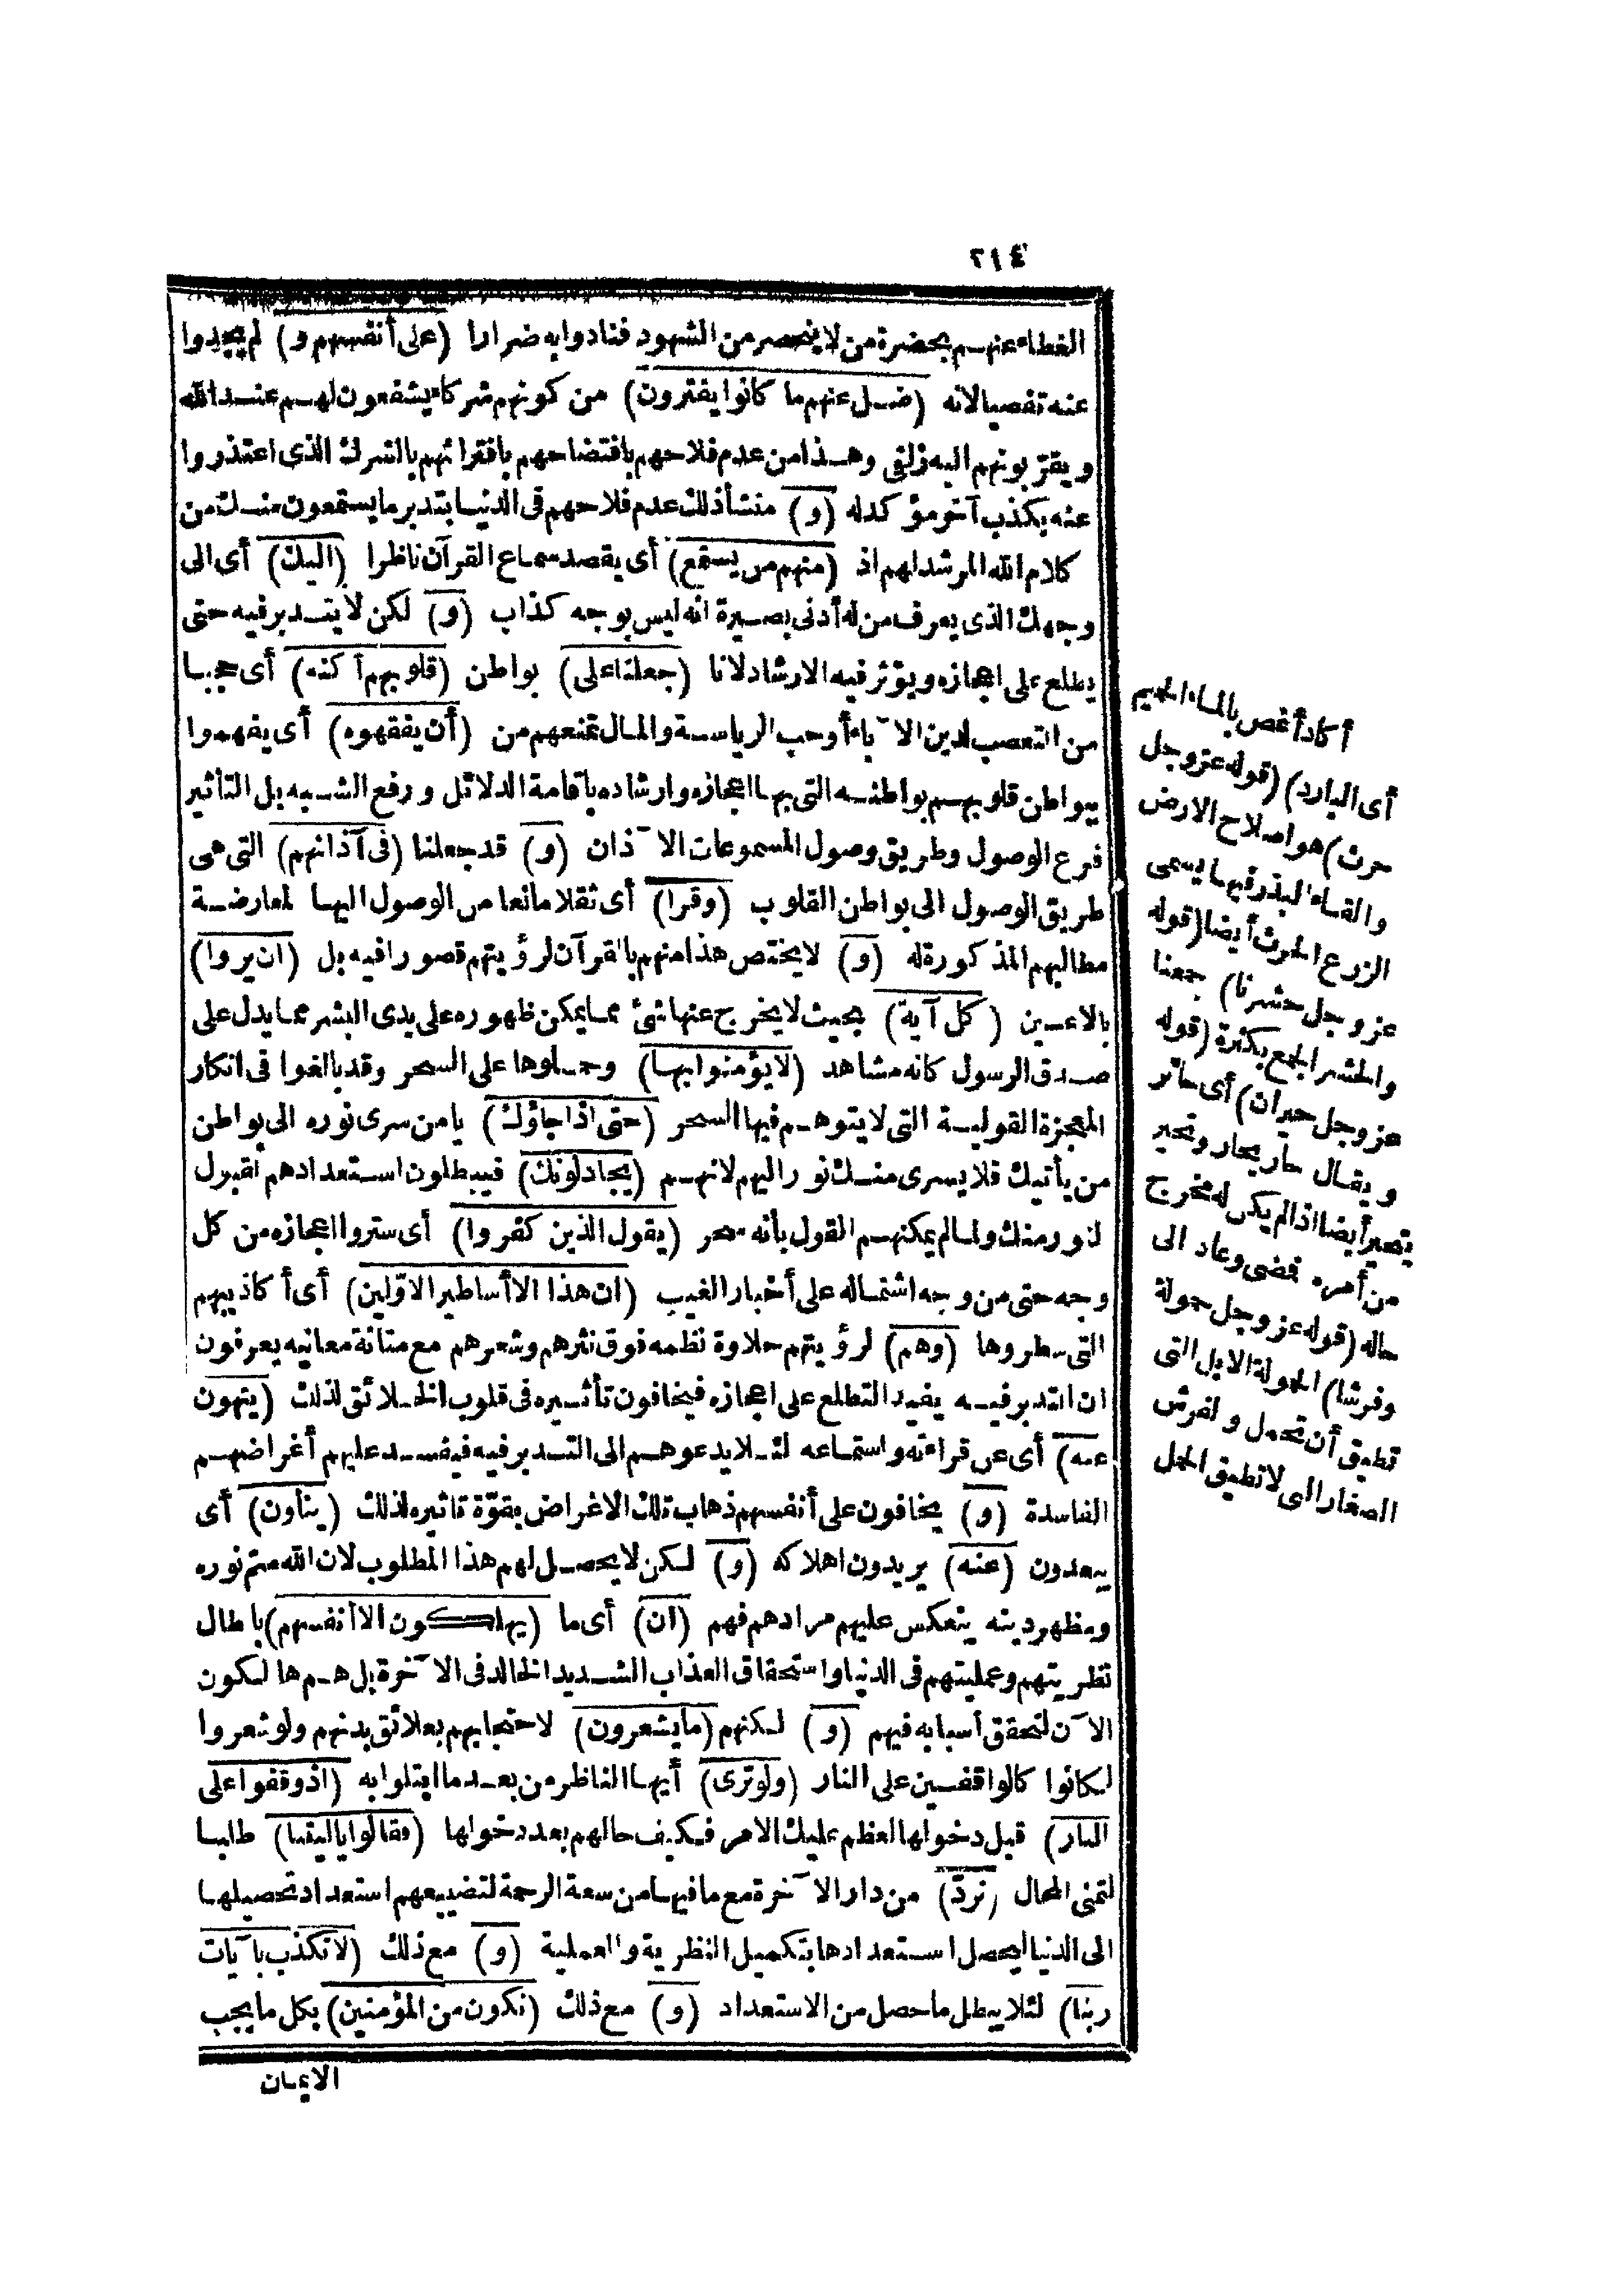 ٢١٤
الغطاء عنهم بحضرة من لا ينحصر من الشهود فنادوا به ضرارا (على أنفسهم و) لم يجدوا
عنه تفصيا لانه (ضل عنهم ما كانوا يفترون) من كونهم شركاء يشفعون لهم عند الله
ويقربونهم اليه زلفى وهذا من عدم فلاحهم بافتضاحهم بافترائهم بالشرك الذى اعتذروا
عنه بكذب آخر مؤكد له (و) منشأ ذلك عدم فلاحهم فى الدنيا بتدبر ما يستمعون منك من
كلام الله المرشد لهم اذ (منهم من يستمع) أى يقصد سماع القرآن ناظرا (اليك) أى الى
وجهك الذى يعرف من له أدنى بصيرة انه ليس بوجه كذاب (و) لكن لا يتدبر فيه حتى
يطلع على اعجازه ويؤثر فيه الارشاد لانا (جعلنا على) بواطن (قلوبهم أكنه) أى حجبا
من التعصب لدين الآباء أو حب الرياسة والمال تمنعهم من (أن يفقهوه) أى يفهموا
ببواطن قلوبهم بواطنه التى بها اعجازه وارشاده باقامة الدلائل ورفع الشبه بل التأثير
فرع الوصول وطريق وصول المسموعات الآذان (و) قد جعلنا (فى آذانهم) التى هى
طريق الوصول الى بواطن القلوب (وقرا) أى ثقلا مانعا من الوصول اليها لمعارضة
مطالبهم المذكورة له (و) لا يختص هذا منهم بالقرآن لرؤيتهم قصورا فيه بل (ان يروا)
بالاعين (كل آية) بحيث لا يخرج عنها شئ مما يمكن ظهوره على يدى البشر مما يدل على
صدق الرسول كانه مشاهد (لا يؤمنوا بها) وحملوها على السحر وقد بالغوا فى انكار
المعجزة القولية التى لا يتوهم فيها السحر (حتى اذا جاؤك) يا من سرى نوره الى بواطن
من يأتيك فلا يسرى منك نور اليهم لانهم (يجادلونك) فيبطلون استعدادهم لقبول
النور منك ولما لم يمكنهم القول بأنه سحر (يقول الذين كفروا) أى ستروا اعجازه من كل
وجه حتى من وجه اشتماله على أخبار الغيب (ان هذا الا أساطير الاوّلين) أى أكاذيبهم
التى سطروها (وهم) لرؤيتهم حلاوة نظمه فوق نثرهم وشعرهم مع متانة معانيه يعرفون
ان التدبر فيه يفيد التطلع على اعجازه فيخافون تأثيره فى قلوب الخلائق لذلك (ينهون
عنه) أى عن قراءته واستماعه لئلا يدعوهم الى التدبر فيه فيفسد عليهم أغراضهم
الفاسدة (و) يخافون على أنفسهم ذهاب تلك الاغراض بقوّة تاثيره لذلك (ينأون) أى
يبعدون (عنه) يريدون اهلاكه (و) لكن لا يحصل لهم هذا المطلوب لان الله متم نوره
ومظهر دينه ينعكس عليهم مرادهم فهم (ان) أى ما (يهلكون الا أنفسهم) بابطال
نظريتهم وعمليتهم فى الدنيا واستحقاق العذاب الشديد الخالد فى الآخرة بل هم هالكون
الآن لتحقق أسبابه فيهم (و) لكنهم (ما يشعرون) لاحتجابهم بعلائق بدنهم ولو شعروا
لكانوا كالواقفين على النار (ولو ترى) أيها الناظر من بعد ما ابتلوا به (اذ وقفوا على
النار) قبل دخولها لعظم عليك الامر فكيف حالهم بعد دخولها (فقالوا ياليتنا) طلبا
لتمنى المحال (نردّ) من دار الآخرة مع ما فيها من سعة الرحمة لتضييعهم استعداد تحصيلها
الى الدنيا ليحصل استعدادها بتكميل النظرية والعملية (و) مع ذلك (لا نكذب بآيات
ربنا) لئلا يبطل ما حصل من الاستعداد (و) مع ذلك (نكون من المؤمنين) بكل ما يجب
الايمان
أكاد أغص بالماء الحميم
أى البارد) (قوله عز وجل
حرث) هو اصلاح الارض
والقاء البذر فيها يسمى
الزرع الحرث أيضا (قوله
عز وجل حشرنا) جمعنا
والحشر الجمع بكثرة (قوله
عز وجل حيران) أى حائر
ويقال حار يحار وتحير
يتحير أيضا اذا لم يكن له مخرج
من أمره فمضى وعاد الى
حاله (قوله عز وجل حمولة
وفرشا) الحمولة الابل التى
تطيق أن تحمل والفرش
الصغار التى لا تطيق الحمل